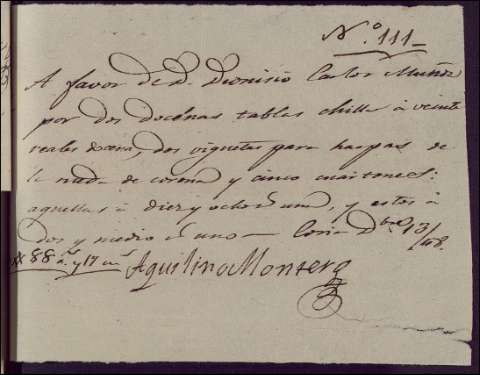 N.º 111
A favor de D. Dionisio Carlos Muñoz
por dos docenas tablas chilla à veinte
reales docena, dos viguetas para
de
la rueda de y cinco cuartones:
aquellas à diez y ocho una, y estos à
dos y medio uno — Coria Dbre 13/48.
88 y 17 Aquilino Montero